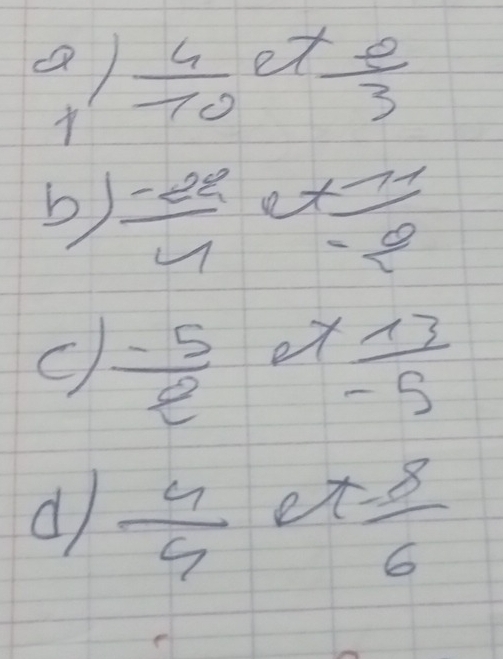 a) 4/10 et 2/3
1
b) -22/4 et 11/-2
c) -5/2 et 13/-5
d) 4/4 et -8/6